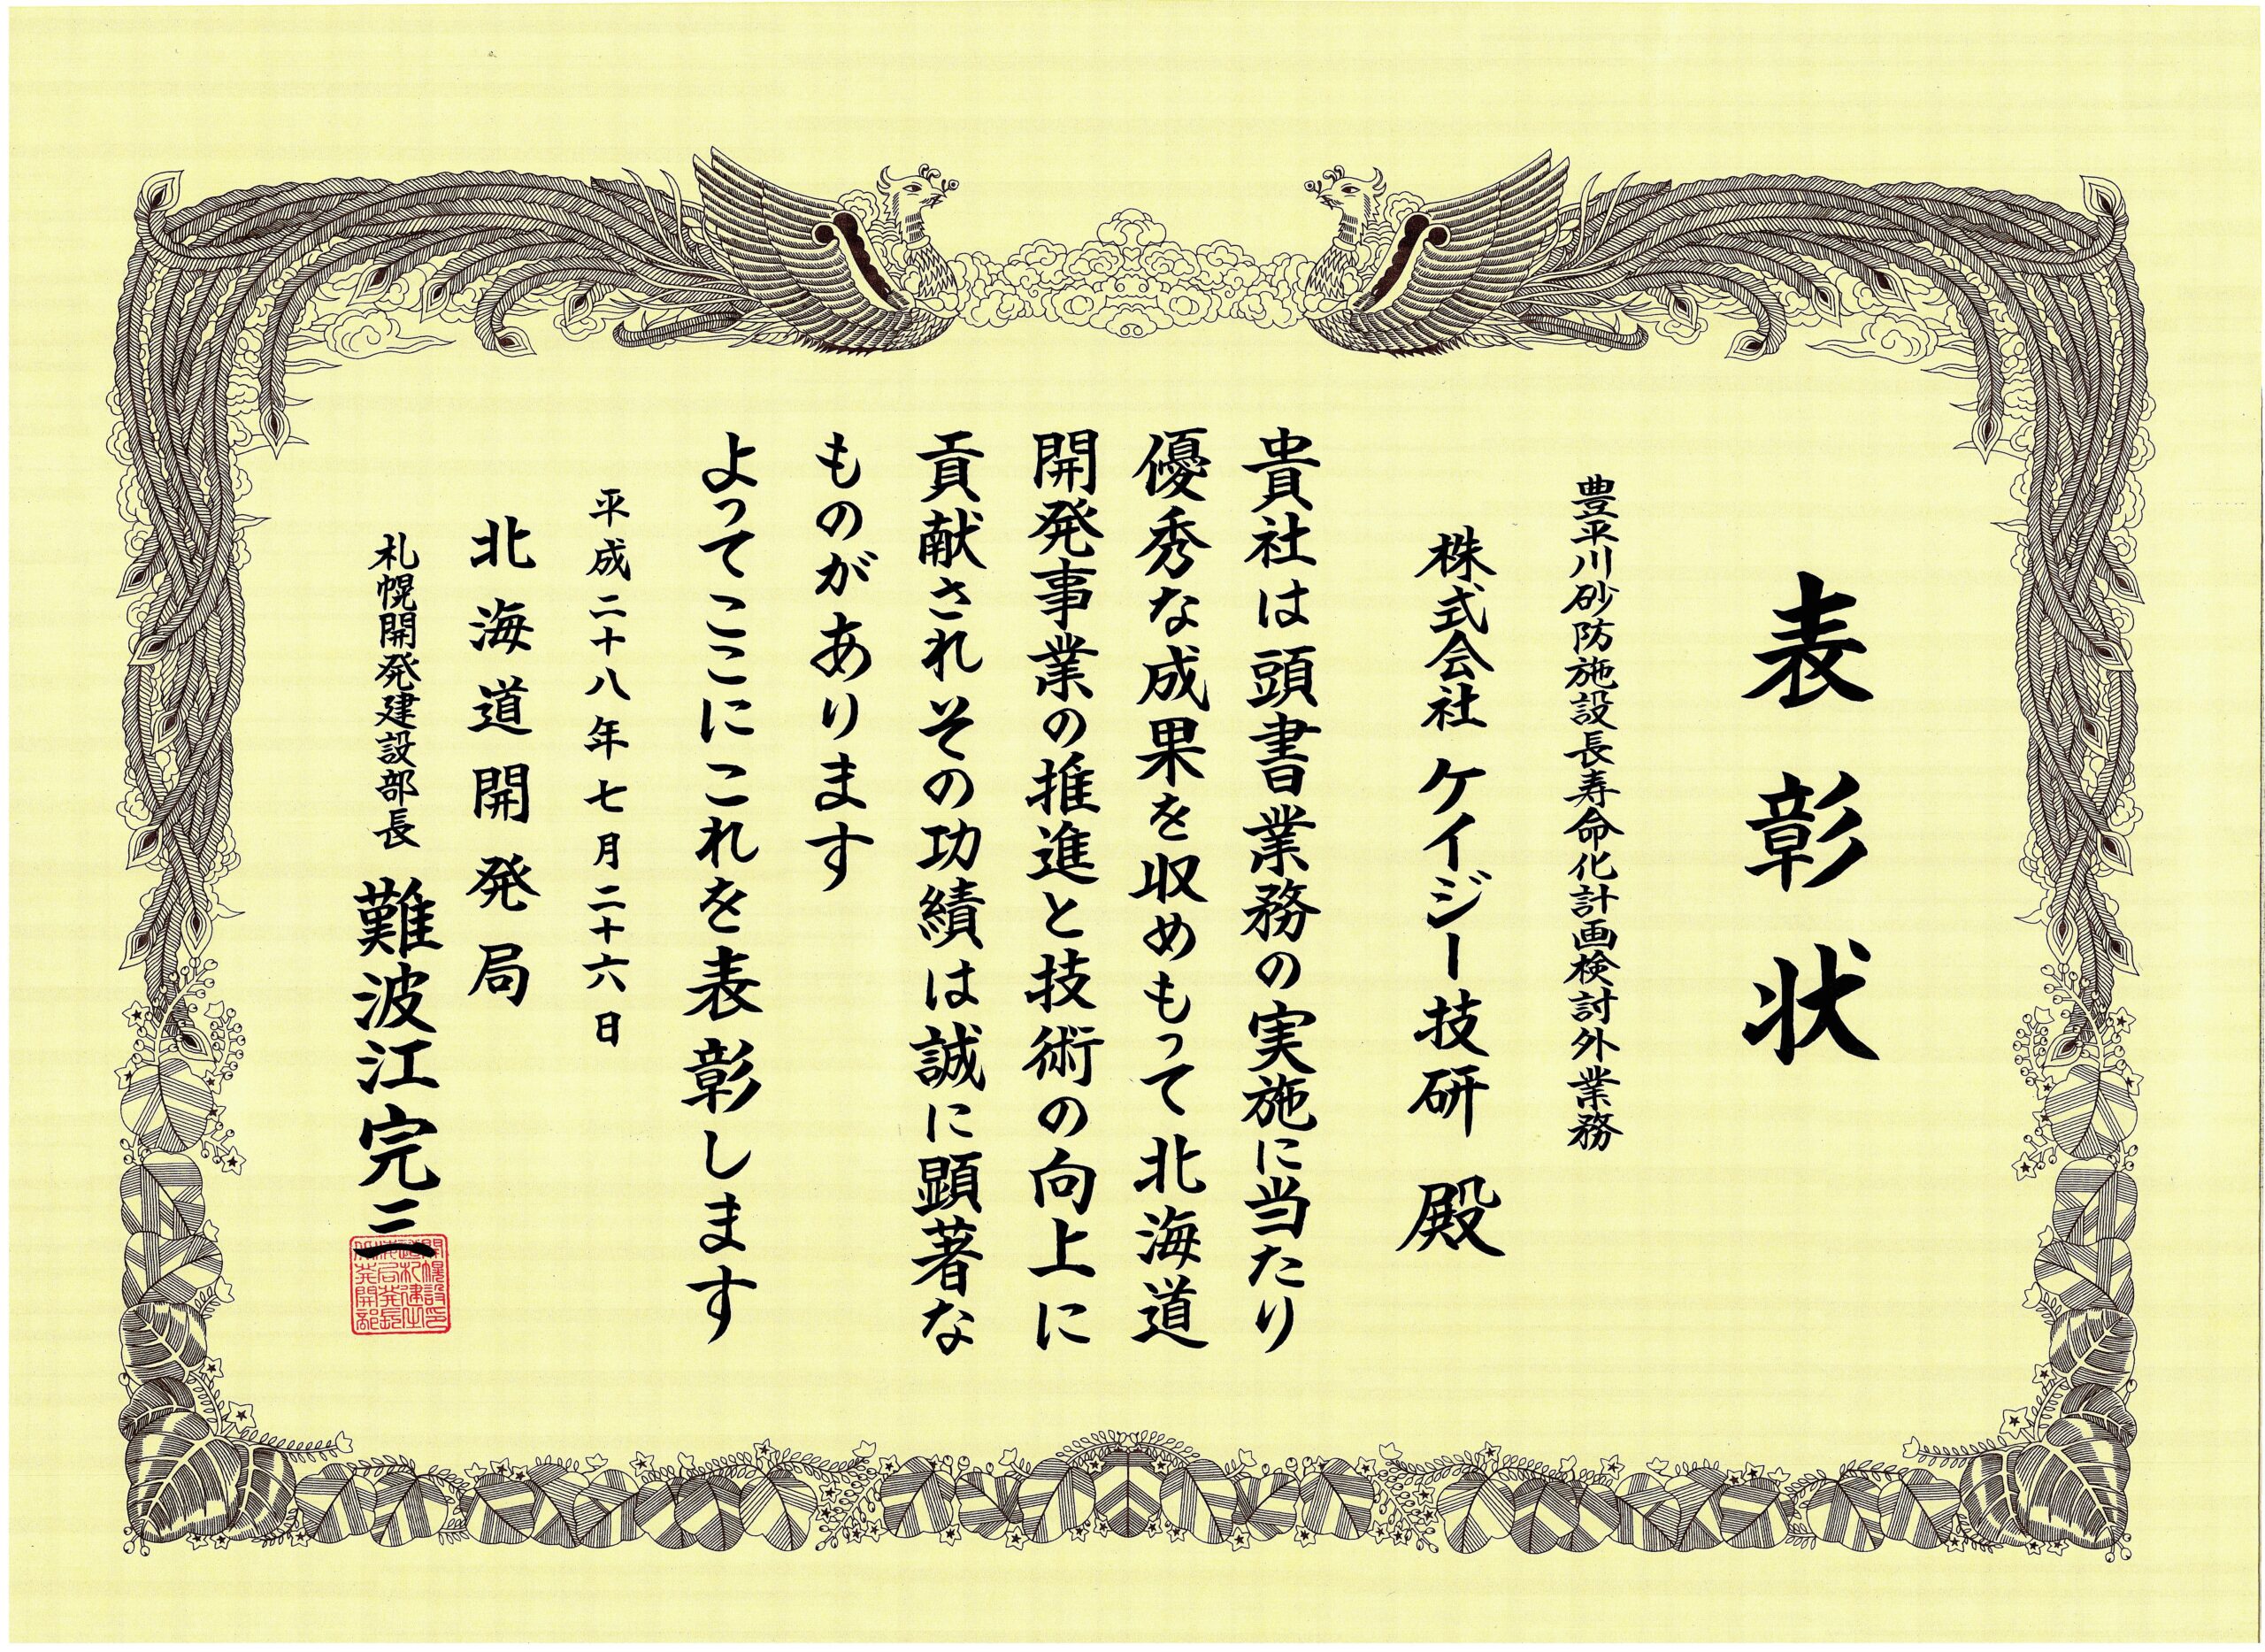 表彰状
豊平川砂防施設長寿命化計画検討外業務
株式会社 ケイジー技研 殿
貴社は頭書業務の実施に当たり
優秀な成果を収めもって北海道
開発事業の推進と技術の向上に
貢献されその功績は誠に顕著な
ものがあります
よってここにこれを表彰します
平成二十八年七月二十六日
北海道開発局
札幌開発建設部長 難波江完三